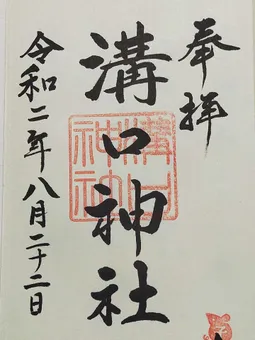 奉拝
溝口神社
令和二年八月二十二日
溝口
神社